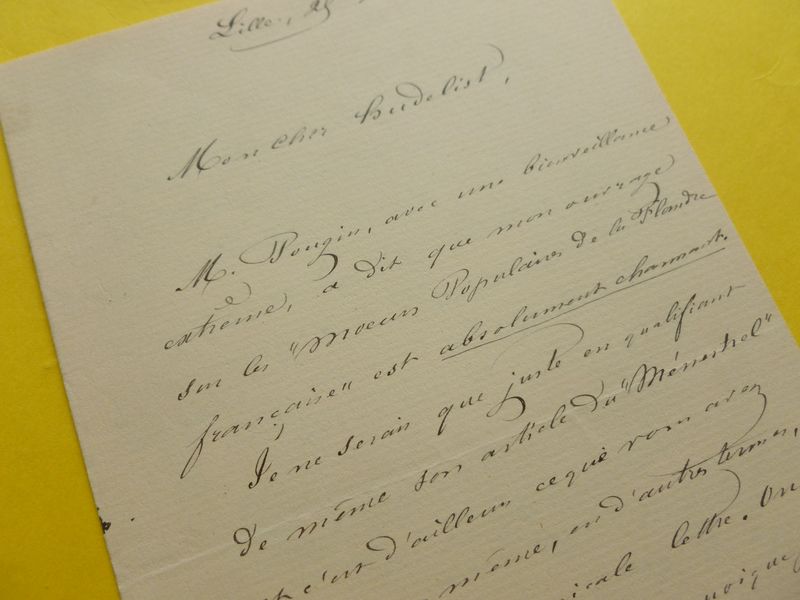 Lille, 25
Mon cher hudelist,
M. Pougin, avec une bienveillance
extrême, a dit que mon ouvrage
sur les "Moeurs Populaires de la Flandre
française" est absolument charmant.
Je ne serais que juste en qualifiant
de même son article du "Ménestrel"
c'est d'ailleurs ce que vous avez
même, en d'autres termes,
lettre. On